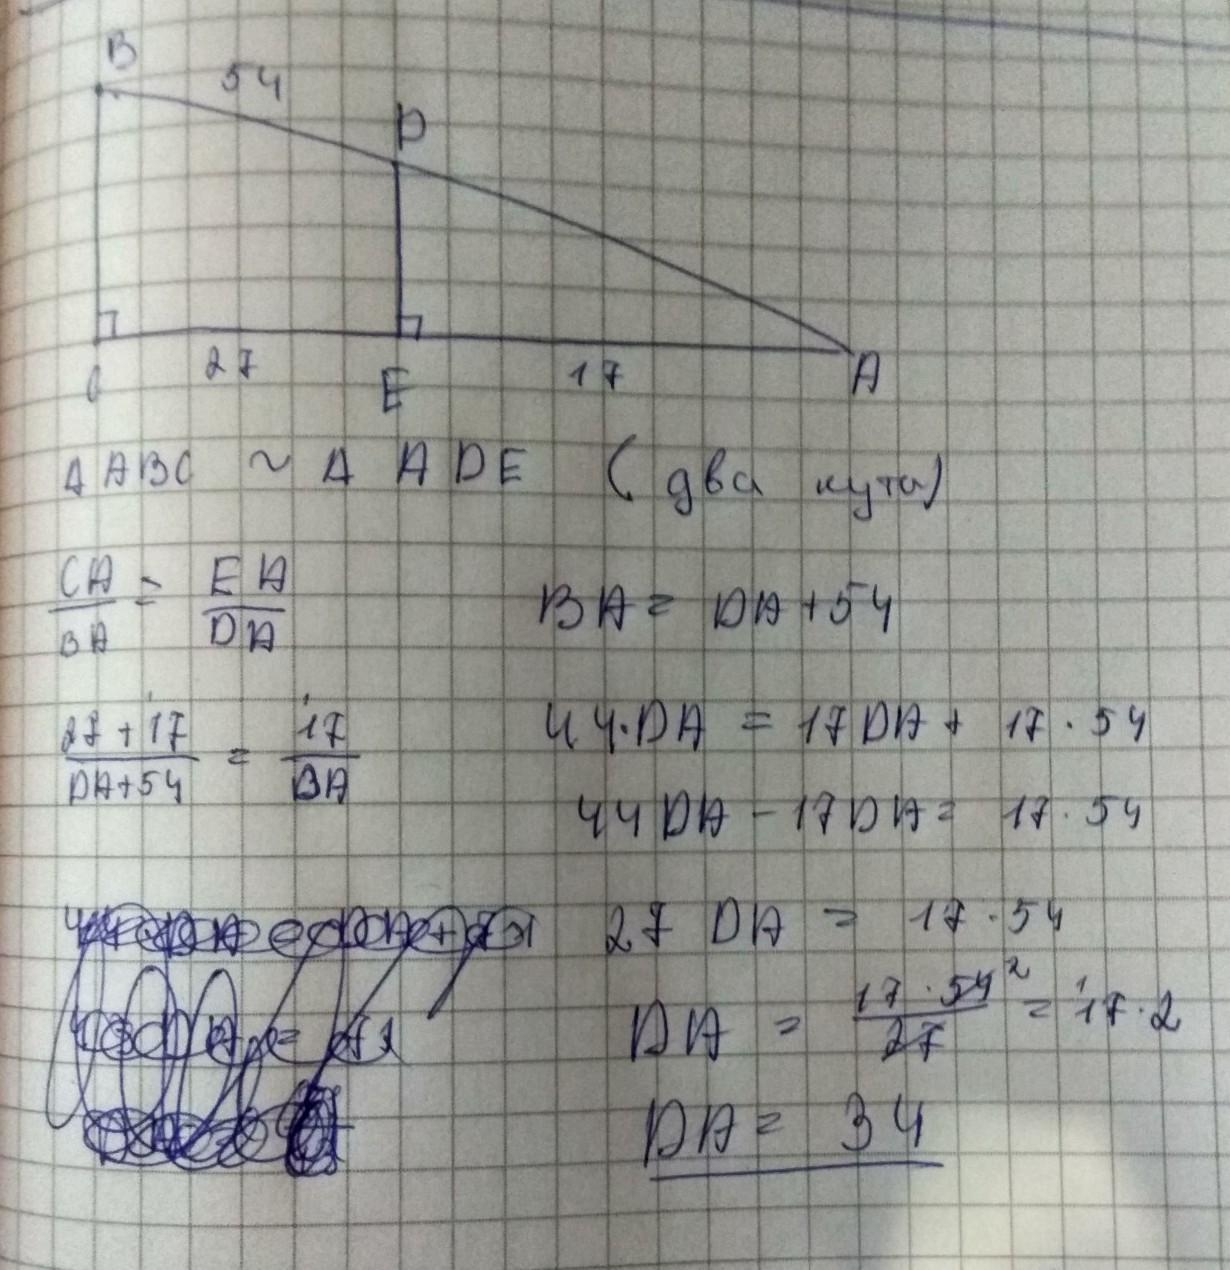 B
54
D
C 27 E 17 A
Δ ABC ~ Δ ADE (два кути)
CA/BA = EA/DA
BA = DA + 54
27 + 17/DA+54 = 17/BA
44·DA = 17DA + 17·54
44DA - 17DA = 17·54
27 DA = 17·54
DA = 17·54²/27 = 17·2
DA = 34